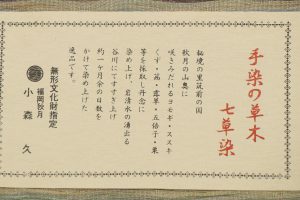 手染の草木
七草染
秘境の里筑前の国
秋月の山奥に
咲きみだれるヨモギ・ススキ
くず・萩・露草・五倍子・栗
等を採取し丹念に
染め上げ、岩清水の湧出る
谷川にてすすぎ上げ
約一ヶ月余の日数を
かけて染め上げた
逸品です。
無形文化財指定
福岡秋月
小森久